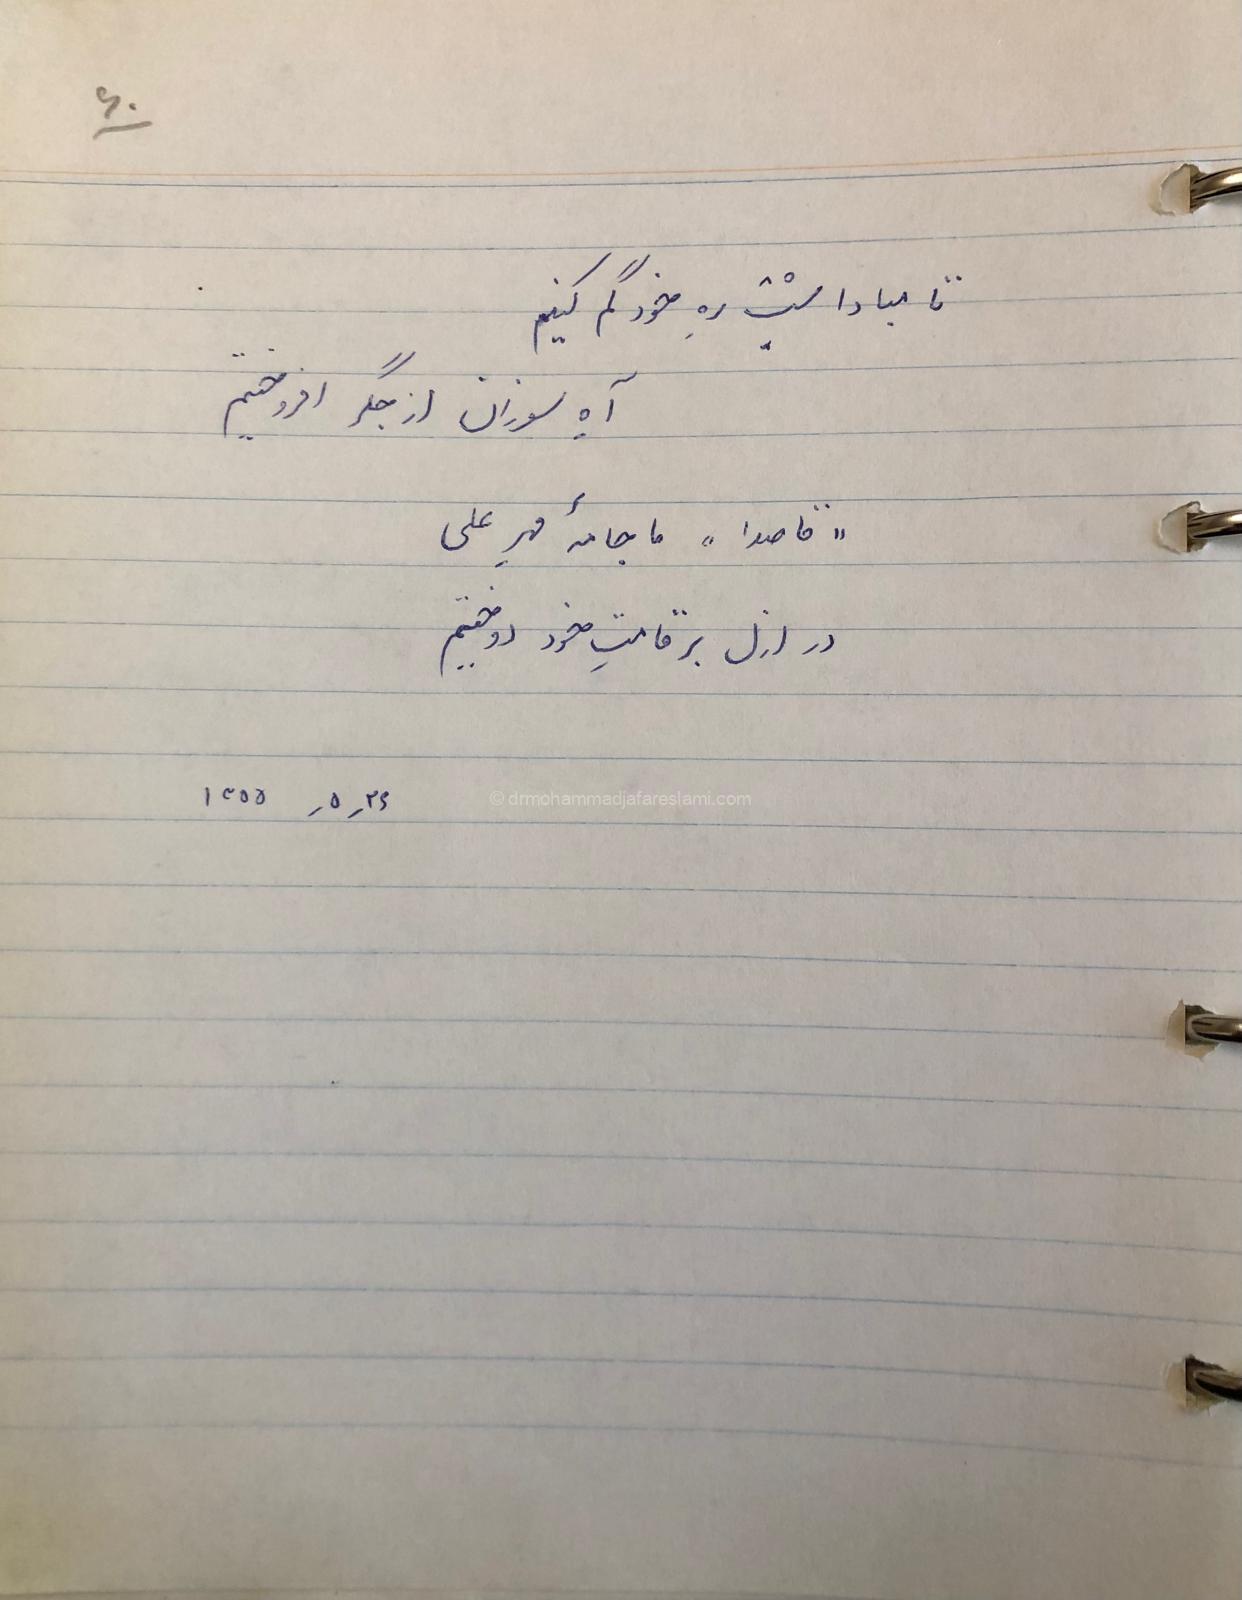 ۶۰
تا مبادا شب رهِ خود گم کنیم
آهِ سوزان از جگر افروختیم
"قاصدا" ما جامهٔ مهرِ علی
در ازل بر قامتِ خود دوختیم
۲۶ر۵ر ۱۳۵۵
© drmohammadjafareslami.com